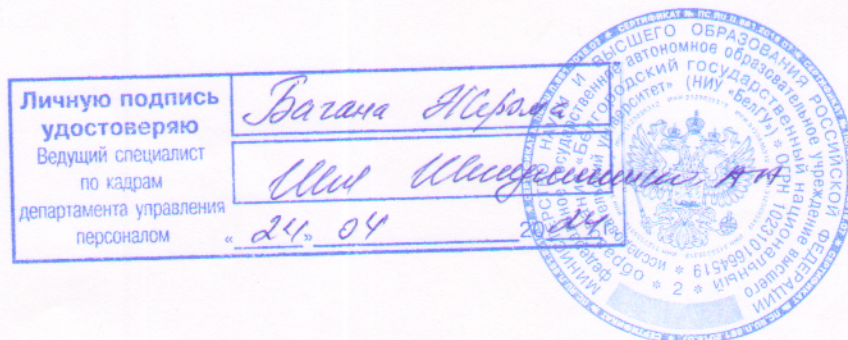 Личную подпись
удостоверяю
Ведущий специалист
по кадрам
департамента управления
персоналом
Багана Жерома
« 24 » 04 2024 г.
МИНИСТЕРСТВО НАУКИ И ВЫСШЕГО ОБРАЗОВАНИЯ РОССИЙСКОЙ ФЕДЕРАЦИИ
федеральное государственное автономное образовательное учреждение высшего образования «Белгородский государственный национальный исследовательский университет» (НИУ «БелГУ») * ОГРН 1023101664519 * 2 *